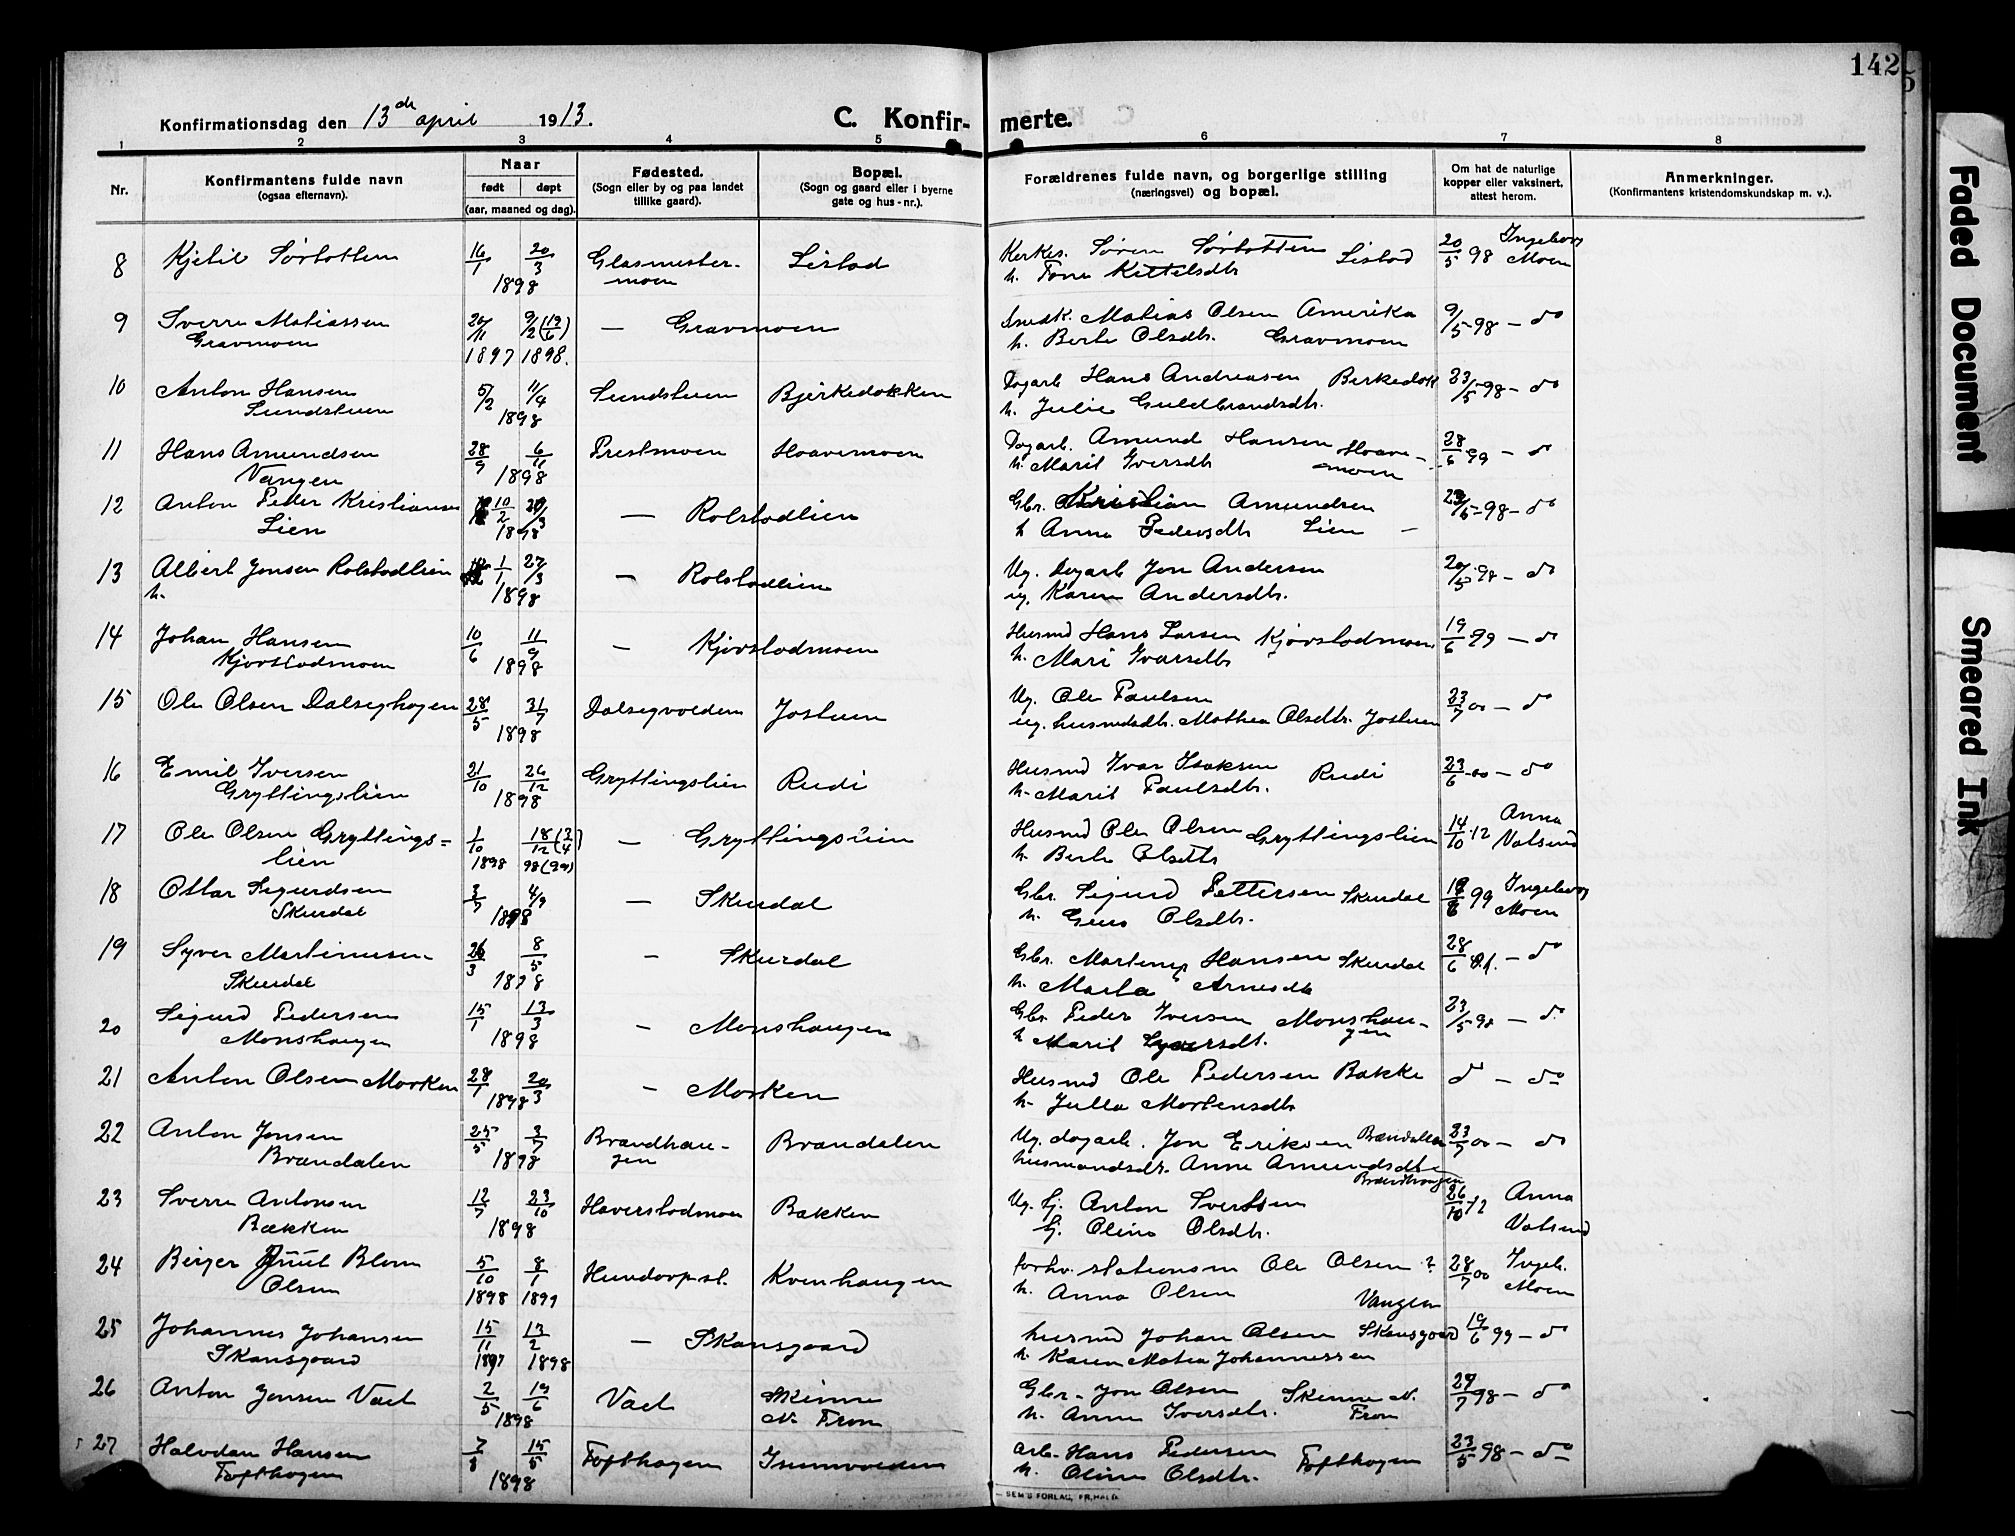 142
Konfirmationsdag den 13de april 1913.
C. Konfirmerte.
1 2 3 4 5 6 7 8
Nr.
Konfirmantens fulde navn
(ogsaa efternavn).
Naar
født døpt
(aar, maaned og dag).
Fødested.
(Sogn eller by og paa landet
tillike gaard).
Bopæl.
(Sogn og gaard eller i byerne
gate og hus-nr.).
Forældrenes fulde navn, og borgerlige stilling
(næringsvei) og bopæl.
Om hat de naturlige
kopper eller vaksinert,
attest herom.
Anmerkninger.
(Konfirmantens kristendomskundskap m. v.).
8 Kjetil Sørtotten 16/1 20/3 Glasmester- Listad Kirkes. Søren Sørtotten Listad 20/5 98 Ingeborg
1898 moen h. Tone Kittelsdtr Moen
9 Sverre Matiassen 20/11 9/2 (19/6) — Gravmoen Snedk. Matias Olsen Amerika 9/5 98 — do
Gravmoen 1897 1898. h. Berte Olsdtr. Gravmoen
10 Anton Hansen 5/2 11/4 Sundstuen Bjerkedokken Dagarb Hans Andreasen Birkedok 23/5 98 — do
Sundstuen 1898 h. Julie Guldbrandsdtr.
11 Hans Amundsen 28/9 6/11 Prestmoen Hoavemoen Dagarb. Amund Hansen Hoave- 28/6 99 — do
Vangen 1898 h. Marit Iversdtr moen
12 Anton Petter Kristiansen 10/2 20/3 — Rolstadlien Gbr. Kristian Amundsen 23/5 98 — do
Lien 1898 h Anna Pedersdtr Lien —
13 Albert Jonsen Rolstadlien 1/1 27/3 — Rolstadlien Ug. Dagarb Jon Andersen 20/5 98 — do
u. 1898 ug. Karen Andersdtr.
14 Johan Hansen 10/6 11/9 — Kjørstadmoen Husmd Hans Larsen Kjørstadmoen 19/6 99 — do
Kjørstadmoen 1898 h. Mari Ivarsdtr
15 Ole Olsen Dalseghagen 28/5 31/7 Dalsegvolden Jostuen Ug. Ole Paulsen 23/7 00 — do
1898 ug. husmdsdtr. Mathea Olsdtr. Jostuen
16 Emil Iversen 21/10 26/12 Gryttingslien Rudi Husmd Ivar Isaksen Rudi 23/6 00 — do
Gryttingslien 1898 h. Marit Paulsdtr.
17 Ole Olsen Gryttings= 1/10 18/12 (2/4) — Gryttingslien Husmd Ole Olsen Gryttingslien 14/10 12 Anna
lien 1898 98(99) h. Berte Olsdtr Valsend
18 Ottar Sigurdsen 3/7 4/9 — Skurdal Gbr. Sigurd Pettersen Skurdal 99 Ingeborg
Skurdal 1898 h. Olsdtr. Moen
19 Syver Martinusen 26/3 8/5 — Skurdal Gbr. Martinus Hansen Skurdal 28/6 01. — do
Skurdal 1898 h. Marta Arnesdtr
20 Sigurd Pedersen 15/1 13/3 — Monshaugen Gbr Peder Iversen Monshau- 23/5 98 — do
Monshaugen 1898 h Marit Syversdt. gen
21 Anton Olsen Morken 28/1 20/3 — Morken Husmd Ole Pedersen Bakke do — do
1898 h. Julla Mortensdtr
22 Anton Jonsen 25/5 3/7 Brandhau- Brændalen Ug. dagarb. Jon Eriksen Brændalen 23/7 00 — do
Brændalen 1898 gen husmandsdtr. Anne Amundsdtr
Brændhaugen
23 Sverre Antonsen 12/7 23/10 Haverstadmoen Bækken Ug. Gj. Anton Svertsen 26/10 12 Anna
Bækken 1898 Gj. Olina Olsdtr. Valsend
24 Birger Juul Blom 5/10 8/1 Hundorp st. Kvenhaugen forhv. stationsm Ole Olsen ? 28/7 00 Ingeb.
Olsen 1898 1899 h. Anna Olsen Vangen Moen
25 Johannes Johansen 15/11 13/2 — Skansgaard husmd Johan Olsen Skansgaard 19/6 99 — do
Skansgaard 1897 1898 h. Karen Matea Johannessen
26 Anton Jonsen Vadt 2/5 19/6 Vadt Skinne Gbr. Jon Olsen Skinne N. 29/7 98 — do
1898 N. Fron h. Anne Iversdtr. Fron
27 Halvdan Hansen 15/5 Tofthagen arb. Hans Pedersen Tofthagen 23/5 98 — do
Tofthagen 1898 h. Oline Olsdtr.
SEM'S FORLAG, FR.HALD.
Faded Document
Smeared Ink